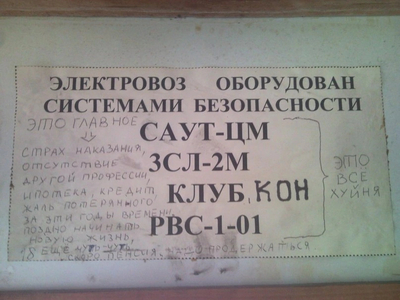 ЭЛЕКТРОВОЗ ОБОРУДОВАН
СИСТЕМАМИ БЕЗОПАСНОСТИ
САУТ-ЦМ
3СЛ-2М
КЛУБ, КОН
РВС-1-01
ЭТО ГЛАВНОЕ
СТРАХ НАКАЗАНИЯ,
ОТСУТСТВИЕ
ДРУГОЙ ПРОФЕССИИ,
ИПОТЕКА, КРЕДИТ
ЖАЛЬ ПОТЕРЯННОГО
ЗА ЭТИ ГОДЫ ВРЕМЕНИ,
ПОЗДНО НАЧИНАТЬ
НОВУЮ ЖИЗНЬ,
ЕЩЕ ЧУТЬ-ЧУТЬ
СКОРО ПЕНСИЯ ПРОДЕРЖАТЬСЯ
ЭТО
ВСЕ
ХУЙНЯ